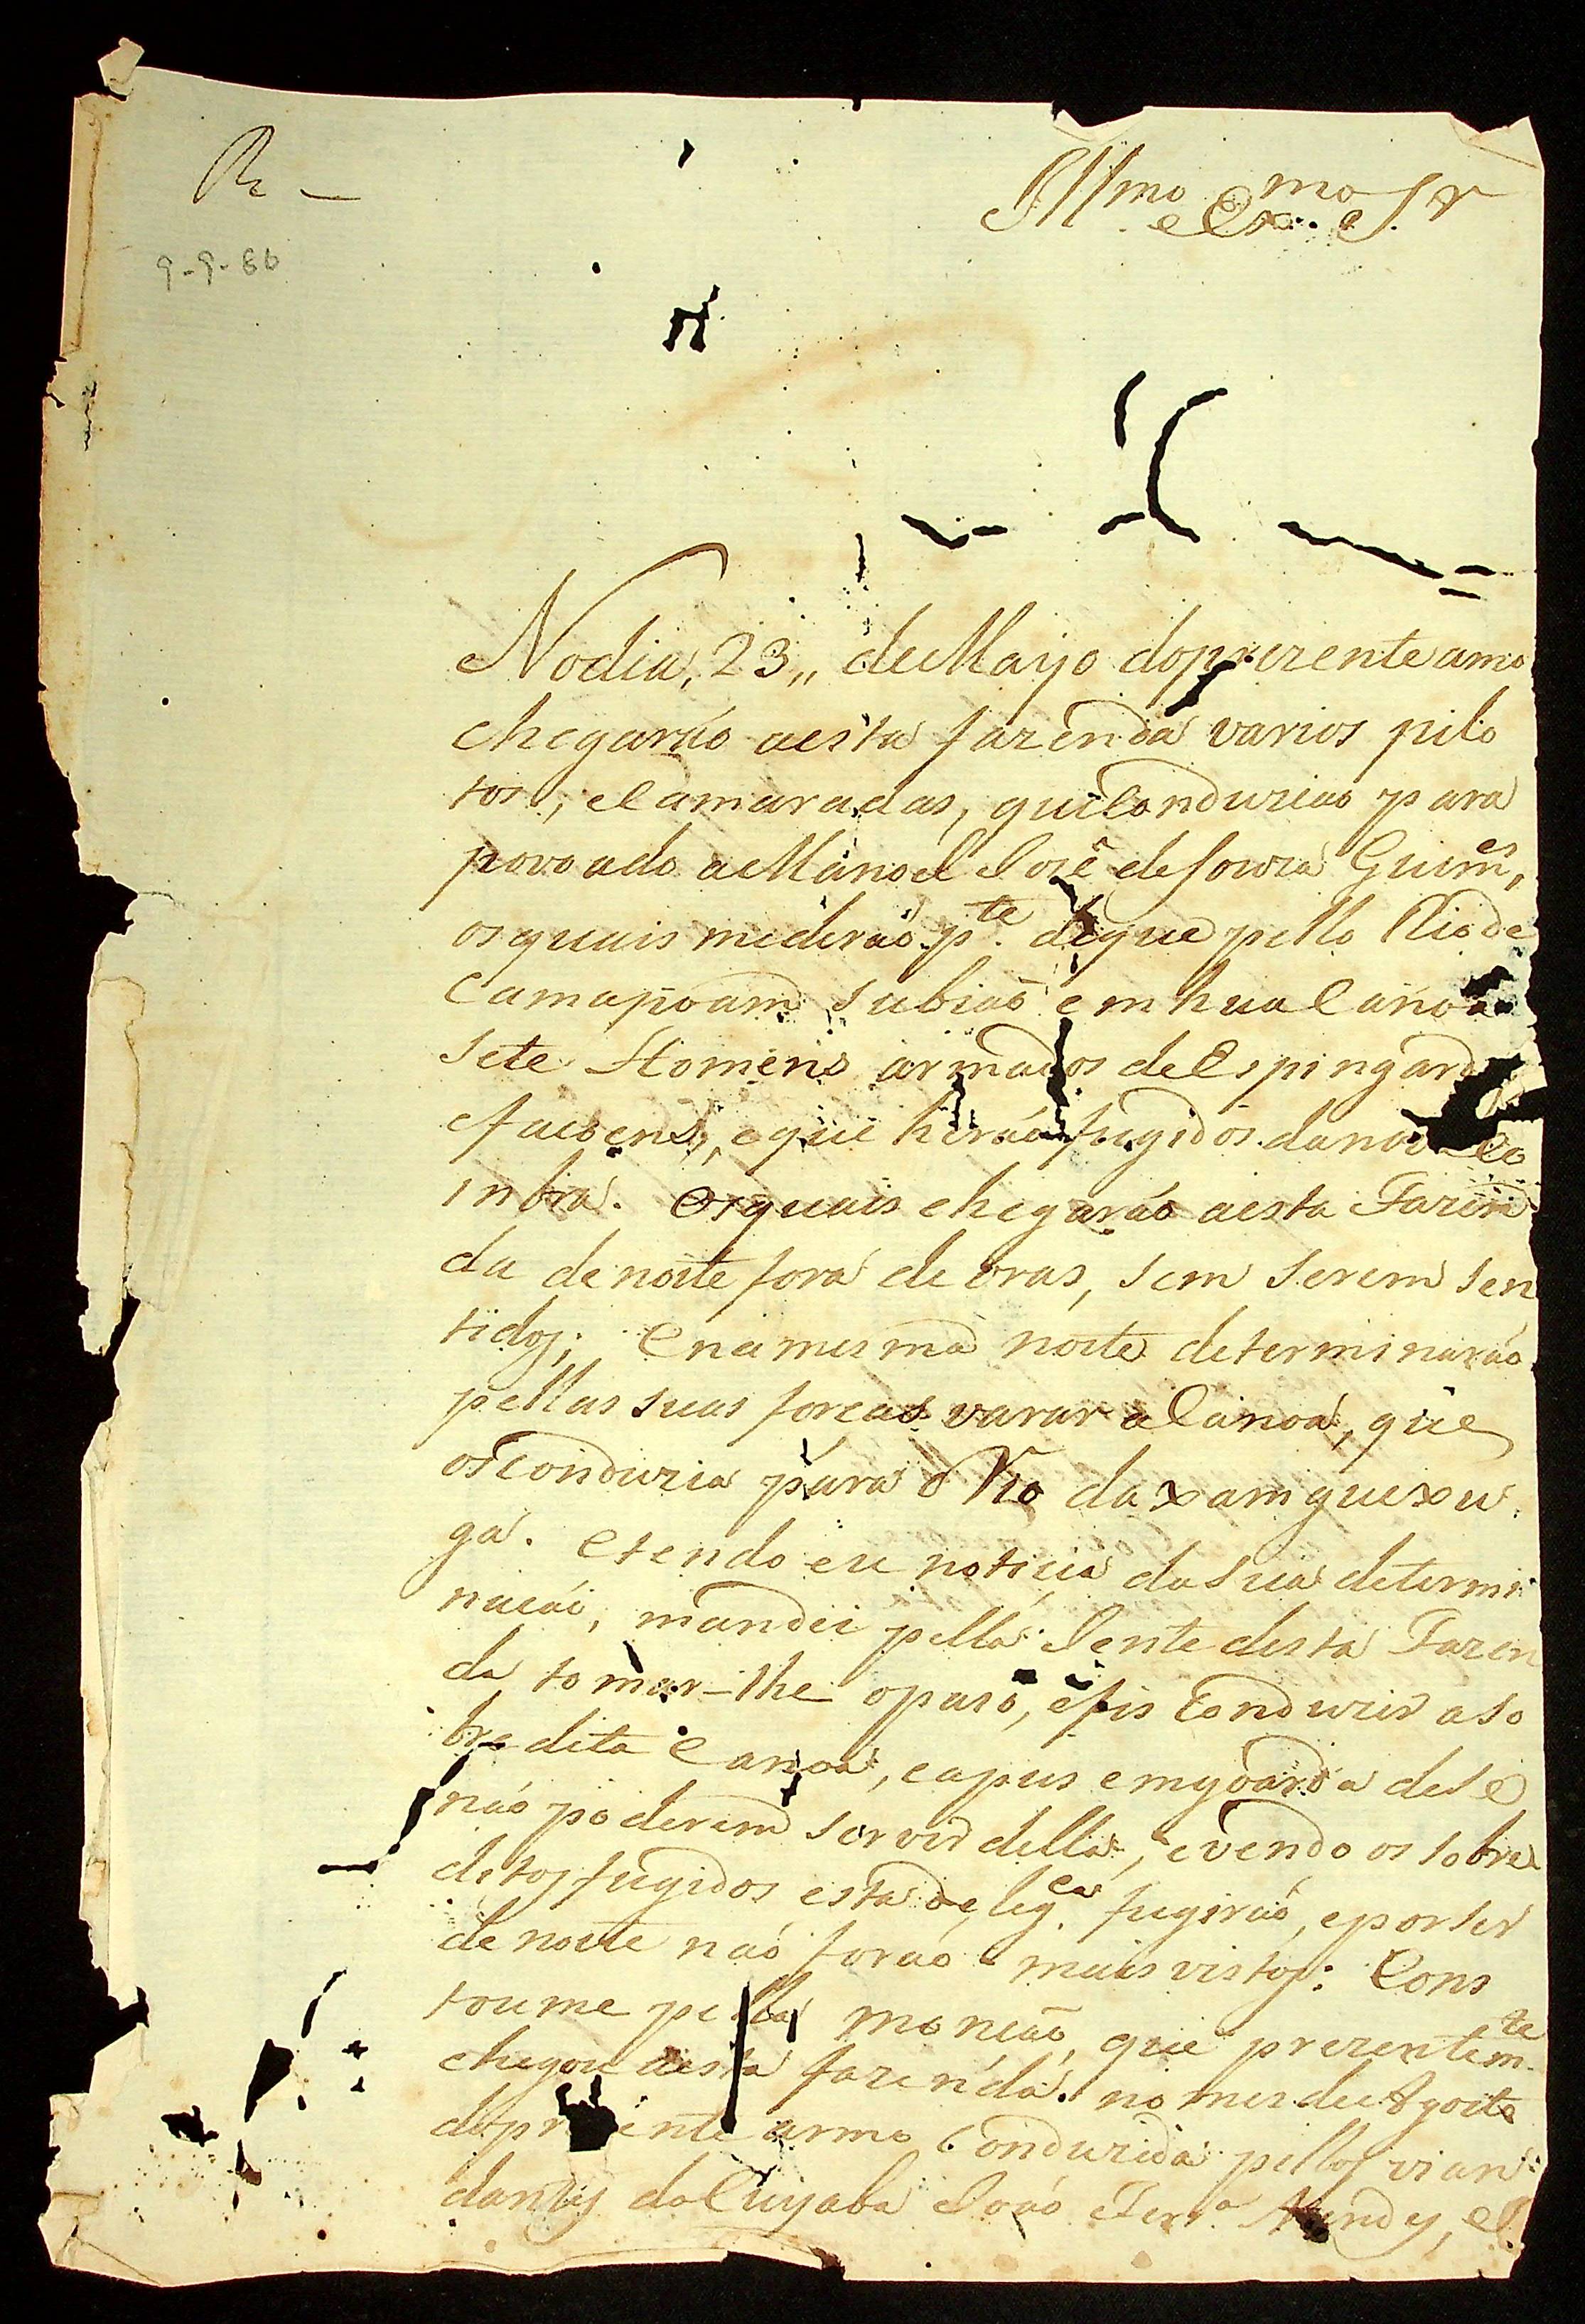 Re –
9-9-86
Illmo e Exmo Sr
No dia, 23,, de Mayo do prezente anno
chegaráo aesta fazenda varios pilo
tos, eCamaradas, que Conduziao para
povoado aManoel Jozé de Souza Guims,
os quais mederáo pte. de que pello Rio de
Camapoam subiaõ em hua Canoa
sete Homens armados de Espingardas
efacoens, eque heraó fugidos danova Co
inbra. Os quais chegaráo aesta Fazen
da de noite fora de oras, sem serem sen
tidos; Enamesma noite determinaráo
pellas suas forcas varar aCanoa, que
os Conduzia para o Rio da xamguexu
ga. Etendo eu noticia dasua determi
nacáo, mandei pella Jente desta Fazen
da tomar-lhe opaso, efis Conduzir aso
bre dita Canoa, eapus emgoarda dese
náo poderem servir della, evendo os sobre
ditos fugidos esta delig.ca fugiráo, epor ser
de noite naó foráo mais vistos: Cons
toume pella moncaó, que prezentemte
chegou aesta fazenda no mes de Agosto
do prezente anno Conduzida pellos vian
dantes do Cuyaba Joáo Ferra Mendes, e